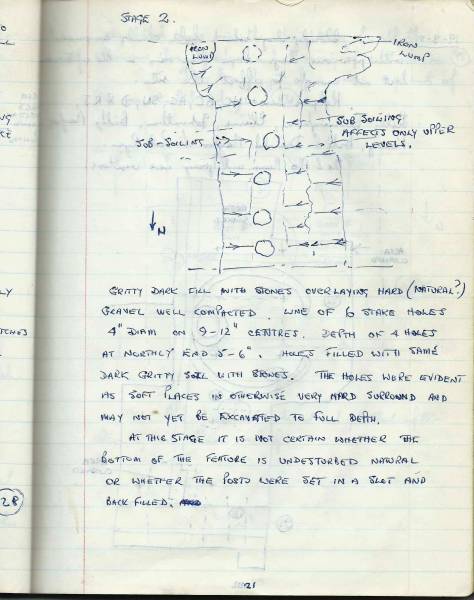 STAGE 2.
IRON LUMP
IRON LUMP
SUB-SOILING
SUB SOILING
AFFECTS ONLY UPPER
LEVELS.
N
GRITTY DARK FILL WITH STONES OVERLAYING HARD (NATURAL?)
GRAVEL WELL COMPACTED. LINE OF 6 STAKE HOLES
4" DIAM ON 9-12" CENTRES. DEPTH OF 4 HOLES
AT NORTHLY END 5-6". HOLES FILLED WITH SAME
DARK GRITTY SOIL WITH STONES. THE HOLES WERE EVIDENT
AS SOFT PLACES IN OTHERWISE VERY HARD SURROUND AND
MAY NOT YET BE EXCAVATED TO FULL DEPTH.
AT THIS STAGE IT IS NOT CERTAIN WHETHER THE
BOTTOM OF THE FEATURE IS UNDISTURBED NATURAL
OR WHETHER THE POSTS WERE SET IN A SLOT AND
BACK FILLED.
28
21